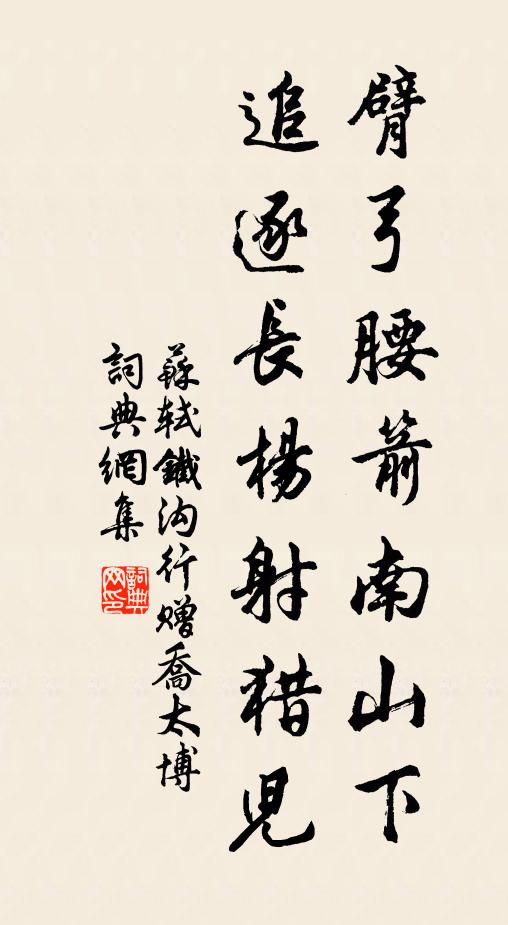 臂弓腰箭南山下
追逐長楊射猎児
蘇轼鐵沟行赠喬太博
詞典網集
詞典网印